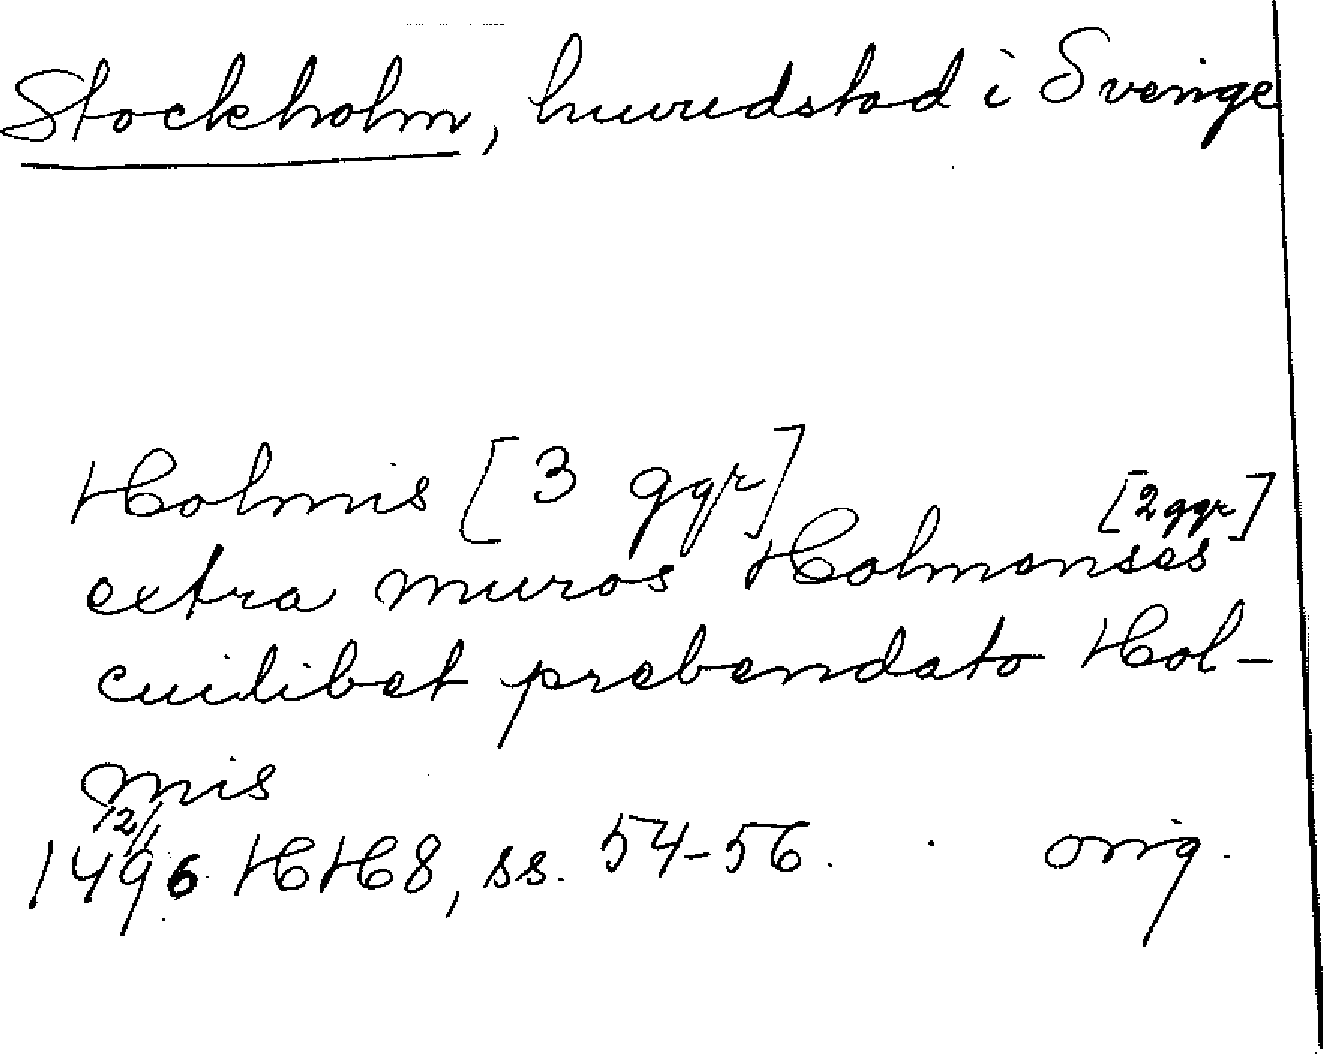 Stockholm, huvudstad i Sverige
Holmis [3 ggr]
[2 ggr]
extra muros Holmenses
cuilibet prebendato Hol-
mis
12/1
1496 HH8, ss. 54-56. orig.